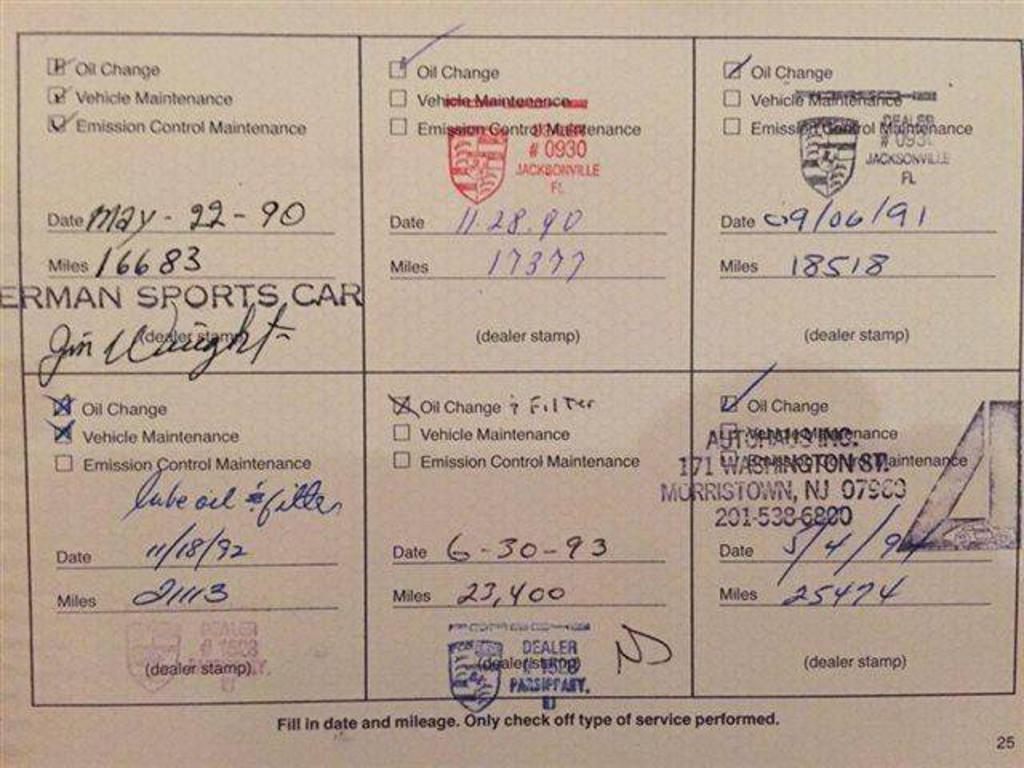 Oil Change
Vehicle Maintenance
Emission Control Maintenance
Date May - 22 - 90
Miles 16683
ERMAN SPORTS CAR
(dealer stamp)
Jim
Oil Change
Vehicle Maintenance
Emission Control Maintenance
DEALER
# 0930
JACKSONVILLE
FL
Date 11.28.90
Miles 17377
(dealer stamp)
Oil Change
Vehicle Maintenance
Emission Control Maintenance
DEALER
# 093
JACKSONVILLE
FL
Date 09/06/91
Miles 18518
(dealer stamp)
Oil Change
Vehicle Maintenance
Emission Control Maintenance
lube oil & filter
Date 11/18/92
Miles 21113
DEALER
(dealer stamp)
Oil Change & Filter
Vehicle Maintenance
Emission Control Maintenance
Date 6-30-93
Miles 23,400
DEALER
(dealer stamp)
PARSIPPANY,
Oil Change
Vehicle Maintenance
Emission Control Maintenance
AUTOHAUS INC.
171 WASHINGTON ST.
MORRISTOWN, NJ 07960
201-538-6800
Date 5/4/94
Miles 25474
(dealer stamp)
Fill in date and mileage. Only check off type of service performed.
25